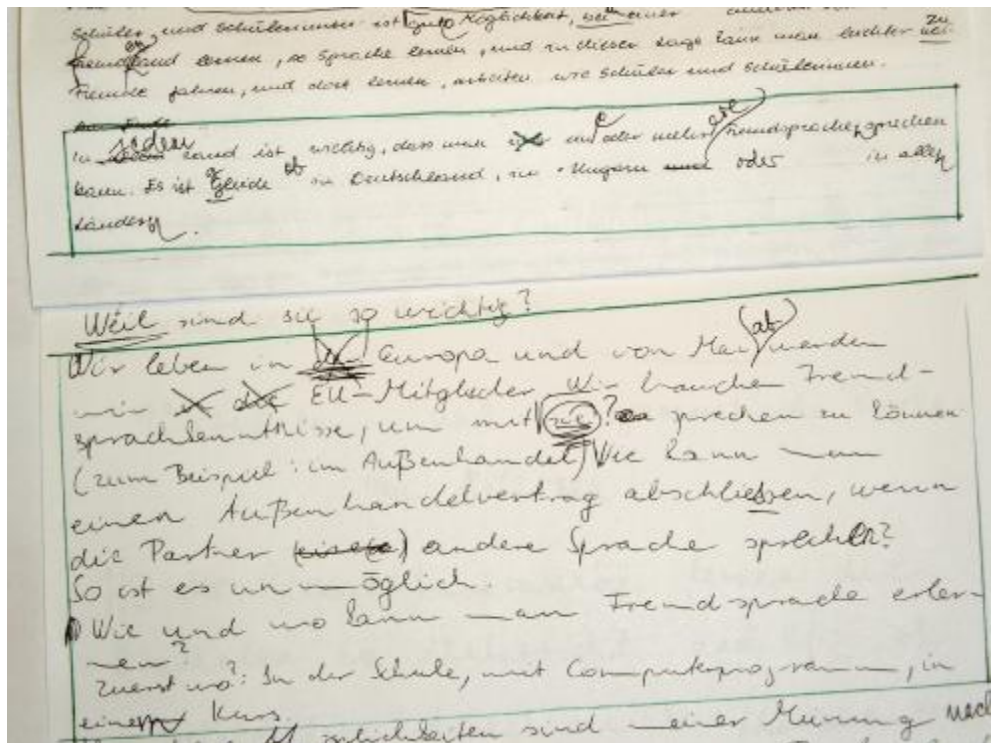 Schüler und Schülerinnen ist gute Möglichkeit, bei einer
Fremdland lernen, so Sprache lernen, und in dieser Lage kann man leichter zu
Fremde fahren, und dort lernen, arbeiten wie Schüler und Schülerinnen.
In jedem Land ist wichtig, dass man eine oder mehr Fremdsprache sprechen
kann. Es ist Gleide ob in Deutschland, in Ungarn und oder in allen
Ländern.
Weil sind sie so wichtig?
Wir leben in Europa und von Mai (ab) werden
wir die EU-Mitglieder. Wir brauchen Fremd-
sprachkenntnisse, um mit ? sprechen zu können
(zum Beispiel: im Außenhandel) Wie kann man
einen Außenhandelvertrag abschließen, wenn
die Partner andere Sprache sprechen?
So ist es unmöglich.
Wie und wo kann man Fremdsprache erler-
nen?
Zuerst wo?: In der Schule, mit Computerprogramm, in
einem Kurs.
sind meiner Meinung nach